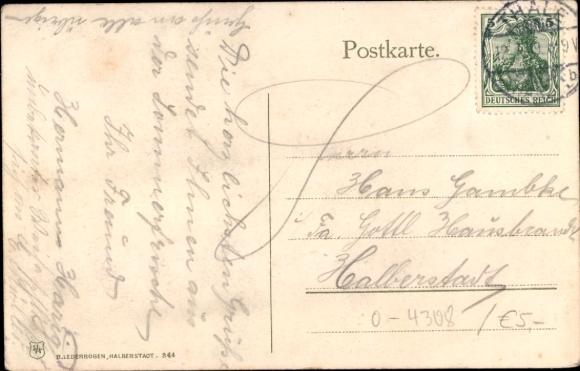 Gruß an alle übrigen
Die herzlichsten Grüße
sendet Ihnen aus
der Sommerfrische
Ihr Freund
Hermann
Postkarte.
THALE
DEUTSCHES REICH
Herrn
Hans Gambke
Fa. Gottl Hausbrandt
Halberstadt
0-4308 / €5,-
B. LEDERBOGEN, HALBERSTADT. 344